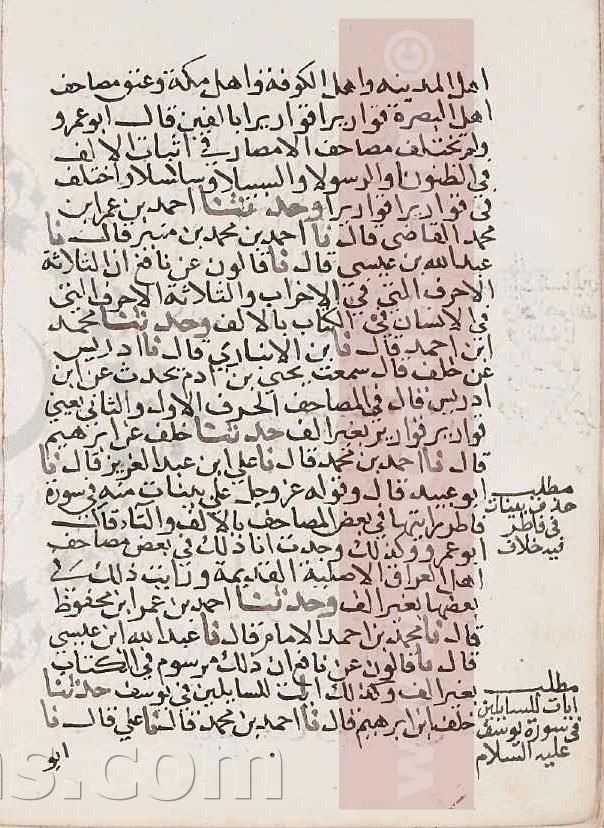 اهل المدينه واهل الكوفة واهل مكة وعتق مصاحف
اهل البصرة قواريرا قواريرا بالفين قال ابوعمرو
ولم تختلف مصاحف الامصار في اثبات الالف
في الظنونا والرسولا والسبيلا وسلاسلا واختلف
في قواريرا قواريرا وحدثنا احمد بن عمر ابن
محمد القاضي قال نا احمد بن محمد بن منير قال نا
عبد الله بن عيسى قال نا قالون عن نافع ان الثلاثة
الاحرف التي في الاحزاب والثلاثة الاحرف التي
في الانسان في الكتاب بالالف وحدثنا محمد
ابن احمد قال نا ابن الانباري قال نا ادريس
عن خلف قال سمعت يحيى بن ادم يحدث عن ابن
ادريس قال في المصاحف الحرف الاول والثاني يعني
قوارير قوارير بغير الف حدثنا خلف عن ابرهيم
قال نا احمد بن محمد قال نا علي ابن عبد العزيز قال نا
ابو عبيد قال وقوله عز وجل على بينات منه في سورة
فاطر رايتها في بعض المصاحف بالالف والتاء قال
ابو عمرو وكذلك وجدت انا ذلك في بعض مصاحف
اهل العراق الاصلية القديمة ورايت ذلك في
بعضها بغير الف وحدثنا احمد بن عمر ابن محفوظ
قال نا محمد بن احمد الامام قال نا عبد الله ابن عيسى
قال نا قالون عن نافع ان ذلك مرسوم في الكتاب
بغير الف وكذلك ايت للسايلين في يوسف حدثنا
خلف ابن ابرهيم قال نا احمد بن محمد قال نا علي قال نا
ابو
مطلب
حذف بينات
في فاطر
فيه خلاف
مطلب
ايات للسايلين
في سورة يوسف
عليه السلام
ns.com
©